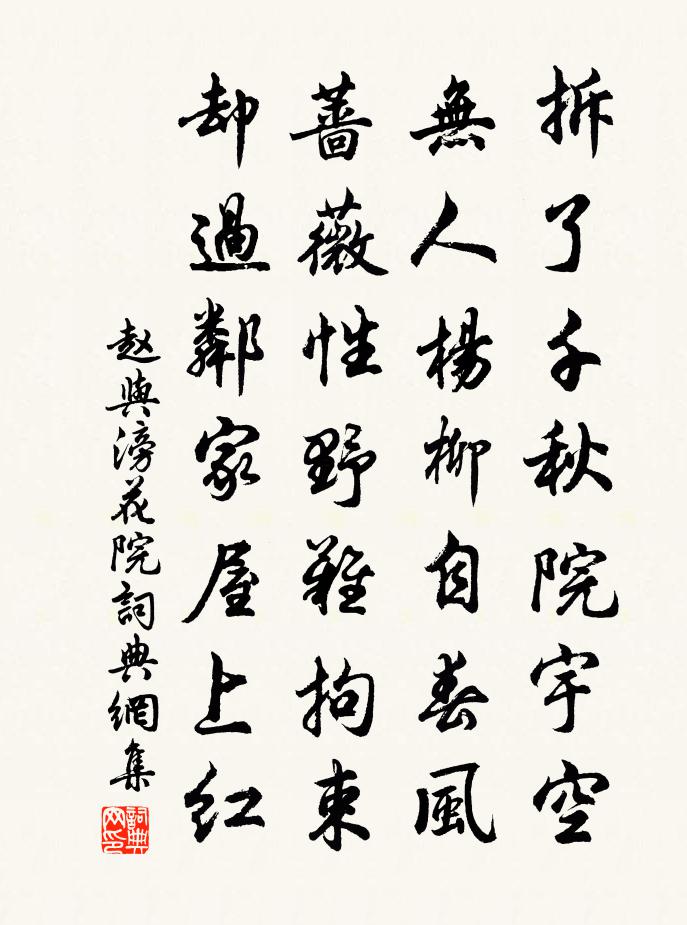 拆了千秋院宇空
無人楊柳自春風
薔薇性野難拘束
却過鄰家屋上紅
赵與滂花院詞典網集
詞典网印